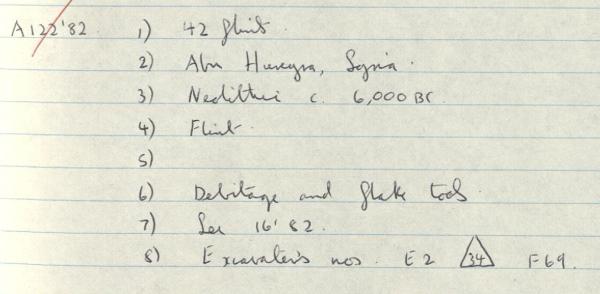 A122'82. 1) 42 flint.
2) Abu Hureyra, Syria.
3) Neolithic c. 6,000 BC.
4) Flint.
5)
6) Debitage and flake tools.
7) See 16'82.
8) Excavater's nos. E2 34 F69.